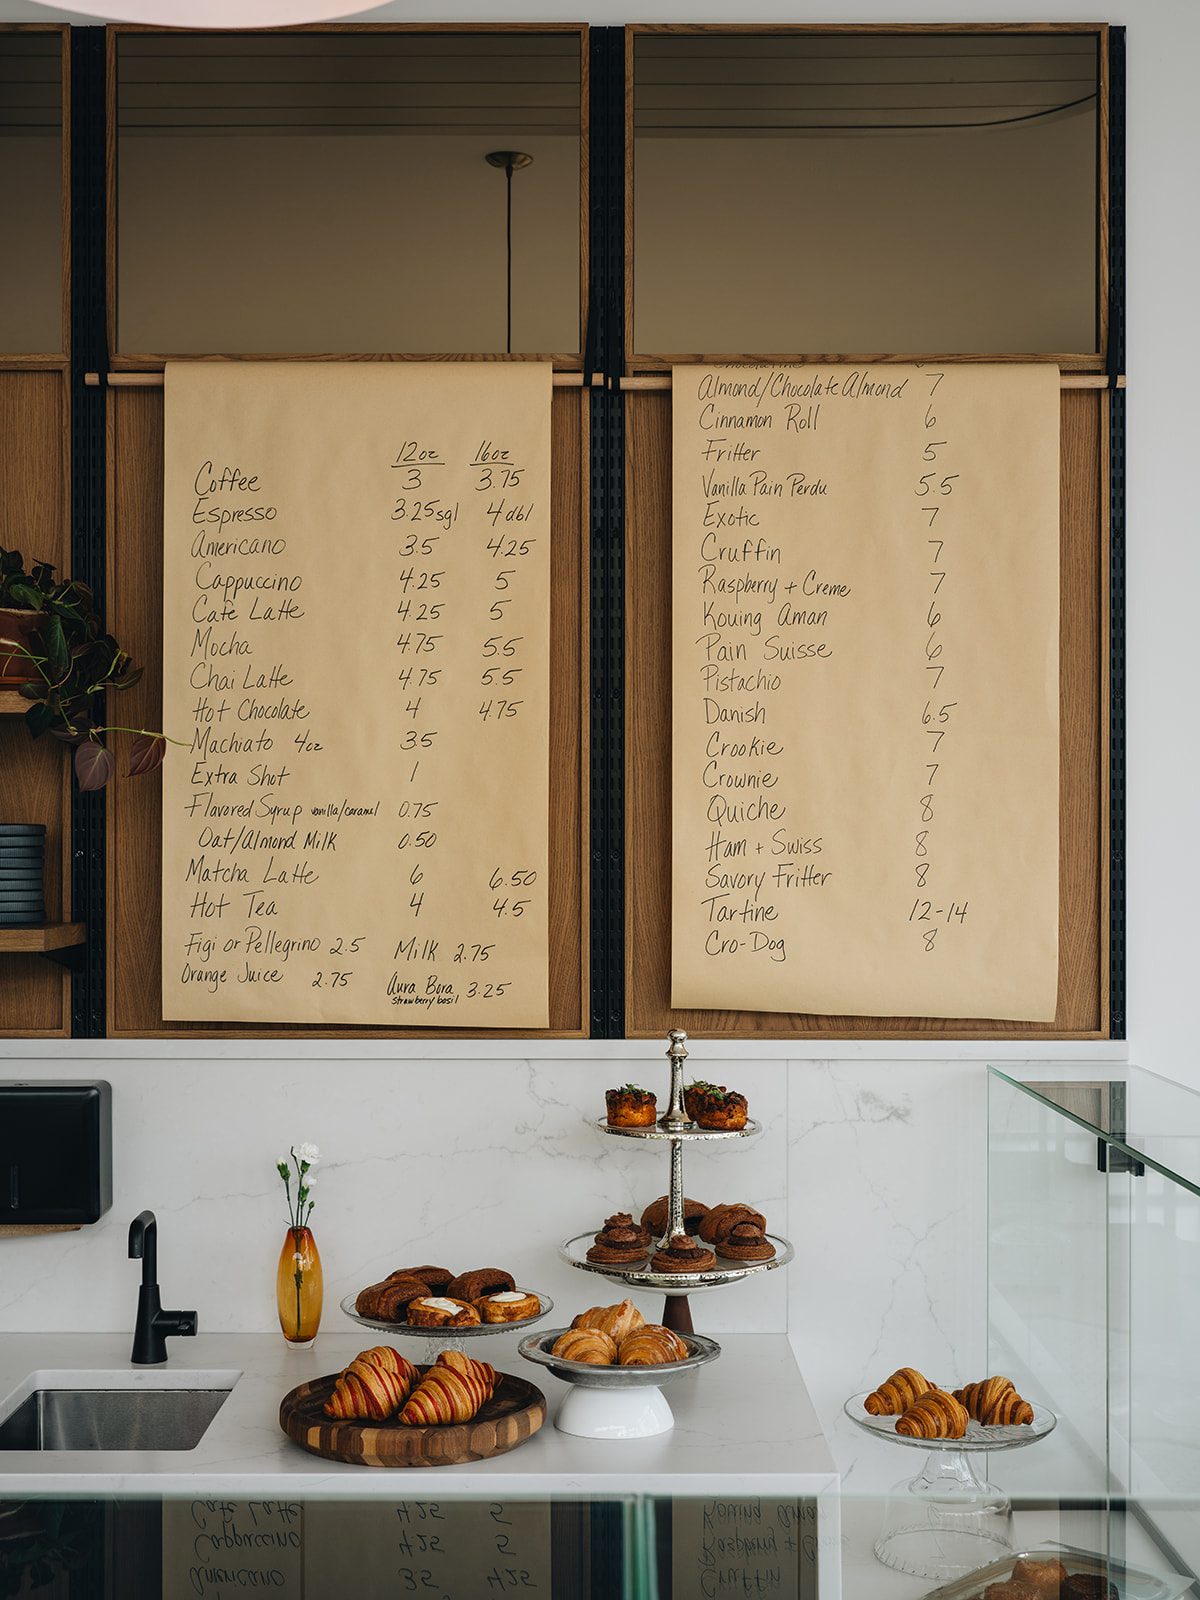 12oz 16oz
Coffee 3 3.75
Espresso 3.25sgl 4dbl
Americano 3.5 4.25
Cappuccino 4.25 5
Cafe Latte 4.25 5
Mocha 4.75 5.5
Chai Latte 4.75 5.5
Hot Chocolate 4 4.75
Machiato 4oz 3.5
Extra Shot 1
Flavored Syrup vanilla/caramel 0.75
Oat/Almond Milk 0.50
Matcha Latte 6 6.50
Hot Tea 4 4.5
Figi or Pellegrino 2.5 Milk 2.75
Orange Juice 2.75 Aura Bora 3.25
strawberry basil
Almond/Chocolate Almond 7
Cinnamon Roll 6
Fritter 5
Vanilla Pain Perdu 5.5
Exotic 7
Cruffin 7
Raspberry + Creme 7
Kouing Aman 6
Pain Suisse 6
Pistachio 7
Danish 6.5
Crookie 7
Crownie 7
Quiche 8
Ham + Swiss 8
Savory Fritter 8
Tartine 12-14
Cro-Dog 8